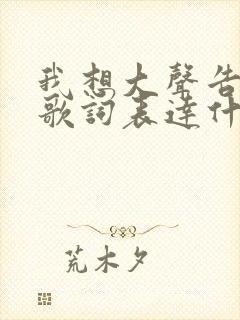 我想大聲告
歌詞表達什
荒木夕